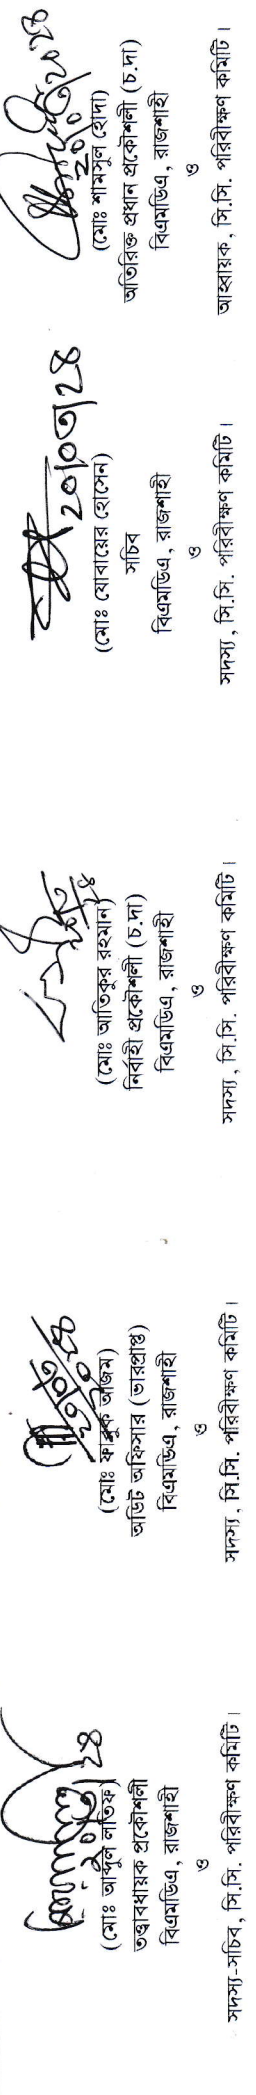 ২০/০৩/২৪
(মোঃ আব্দুল লতিফ)
তত্ত্বাবধায়ক প্রকৌশলী
বিএমডিএ, রাজশাহী
ও
সদস্য-সচিব, সি.সি. পরিবীক্ষণ কমিটি।
২০/০৩/২৪
(মোঃ ফারুক আজম)
অডিট অফিসার (ভারপ্রাপ্ত)
বিএমডিএ, রাজশাহী
ও
সদস্য, সি.সি. পরিবীক্ষণ কমিটি।
(মোঃ আতিকুর রহমান)
নির্বাহী প্রকৌশলী (চ.দা)
বিএমডিএ, রাজশাহী
ও
সদস্য, সি.সি. পরিবীক্ষণ কমিটি।
২০/০৩/২৪
(মোঃ যোবায়ের হোসেন)
সচিব
বিএমডিএ, রাজশাহী
ও
সদস্য, সি.সি. পরিবীক্ষণ কমিটি।
২০/০৩/২০২৪
(মোঃ শামসুল হোদা)
অতিরিক্ত প্রধান প্রকৌশলী (চ.দা)
বিএমডিএ, রাজশাহী
ও
আহবায়ক, সি.সি. পরিবীক্ষণ কমিটি।